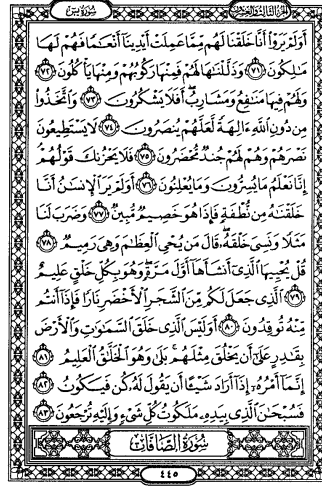 الجزء الثالث والعشرون
سورة يس
أَوَلَمْ يَرَوْا۟ أَنَّا خَلَقْنَا لَهُم مِّمَّا عَمِلَتْ أَيْدِينَآ أَنْعَـٰمًا فَهُمْ لَهَا
مَـٰلِكُونَ ٧١ وَذَلَّلْنَـٰهَا لَهُمْ فَمِنْهَا رَكُوبُهُمْ وَمِنْهَا يَأْكُلُونَ ٧٢
وَلَهُمْ فِيهَا مَنَـٰفِعُ وَمَشَارِبُ ۖ أَفَلَا يَشْكُرُونَ ٧٣ وَٱتَّخَذُوا۟
مِن دُونِ ٱللَّهِ ءَالِهَةً لَّعَلَّهُمْ يُنصَرُونَ ٧٤ لَا يَسْتَطِيعُونَ
نَصْرَهُمْ وَهُمْ لَهُمْ جُندٌ مُّحْضَرُونَ ٧٥ فَلَا يَحْزُنكَ قَوْلُهُمْ ۘ
إِنَّا نَعْلَمُ مَا يُسِرُّونَ وَمَا يُعْلِنُونَ ٧٦ أَوَلَمْ يَرَ ٱلْإِنسَـٰنُ أَنَّا
خَلَقْنَـٰهُ مِن نُّطْفَةٍ فَإِذَا هُوَ خَصِيمٌ مُّبِينٌ ٧٧ وَضَرَبَ لَنَا
مَثَلًا وَنَسِىَ خَلْقَهُۥ ۖ قَالَ مَن يُحْىِ ٱلْعِظَـٰمَ وَهِىَ رَمِيمٌ ٧٨
قُلْ يُحْيِيهَا ٱلَّذِىٓ أَنشَأَهَآ أَوَّلَ مَرَّةٍ ۖ وَهُوَ بِكُلِّ خَلْقٍ عَلِيمٌ
٧٩ ٱلَّذِى جَعَلَ لَكُم مِّنَ ٱلشَّجَرِ ٱلْأَخْضَرِ نَارًا فَإِذَآ أَنتُم
مِّنْهُ تُوقِدُونَ ٨٠ أَوَلَيْسَ ٱلَّذِى خَلَقَ ٱلسَّمَـٰوَٰتِ وَٱلْأَرْضَ
بِقَـٰدِرٍ عَلَىٰٓ أَن يَخْلُقَ مِثْلَهُم ۚ بَلَىٰ وَهُوَ ٱلْخَلَّـٰقُ ٱلْعَلِيمُ ٨١
إِنَّمَآ أَمْرُهُۥٓ إِذَآ أَرَادَ شَيْـًٔا أَن يَقُولَ لَهُۥ كُن فَيَكُونُ ٨٢
فَسُبْحَـٰنَ ٱلَّذِى بِيَدِهِۦ مَلَكُوتُ كُلِّ شَىْءٍ وَإِلَيْهِ تُرْجَعُونَ ٨٣
سورة الصافات
٤٤٥